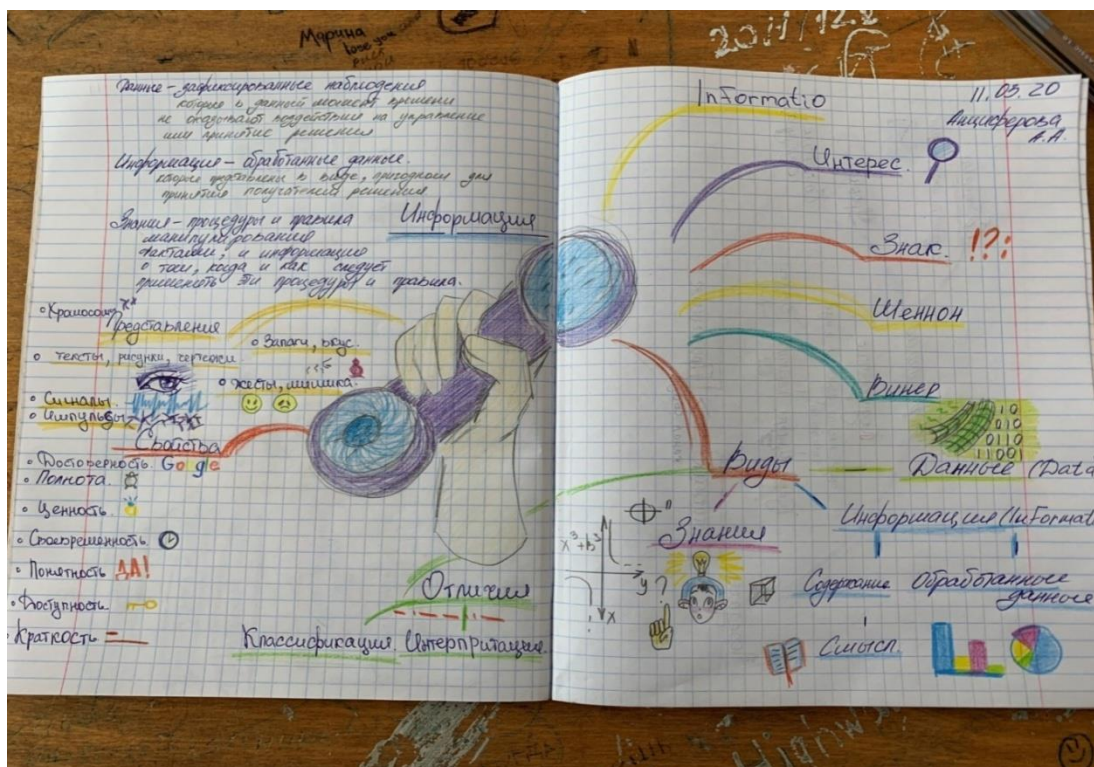 Марина
love you
20.11/12.2
Данные – зафиксированные наблюдения
которые в данный момент времени
не оказывают воздействия на управление
или принятие решения
Информация – обработанные данные.
которые представлены в виде, пригодном для
принятия получателем решения
Знания – процедуры и правила
манипулирования
фактами, и информация
о том, когда и как следует
применять эти процедуры и правила.
Информация
Представления
Запахи, вкус.
тексты, рисунки, чертежи
жесты, мимика.
Сигналы.
Импульсы
Свойства
Достоверность. Google
Полнота.
Ценность.
Своевременность.
Понятность ДА!
Доступность.
Краткость
Отличия
Классификация. Интерпритация.
Informatio
11.05.20
Анциферова
А.А.
Интерес.
Знак. !?:
Шеннон
Винер
10
010
0110
11001
Виды
Данные (Data
Информация (Informat
Знания
y
?
x
Содержание
Обработанные
данные
Смысл.